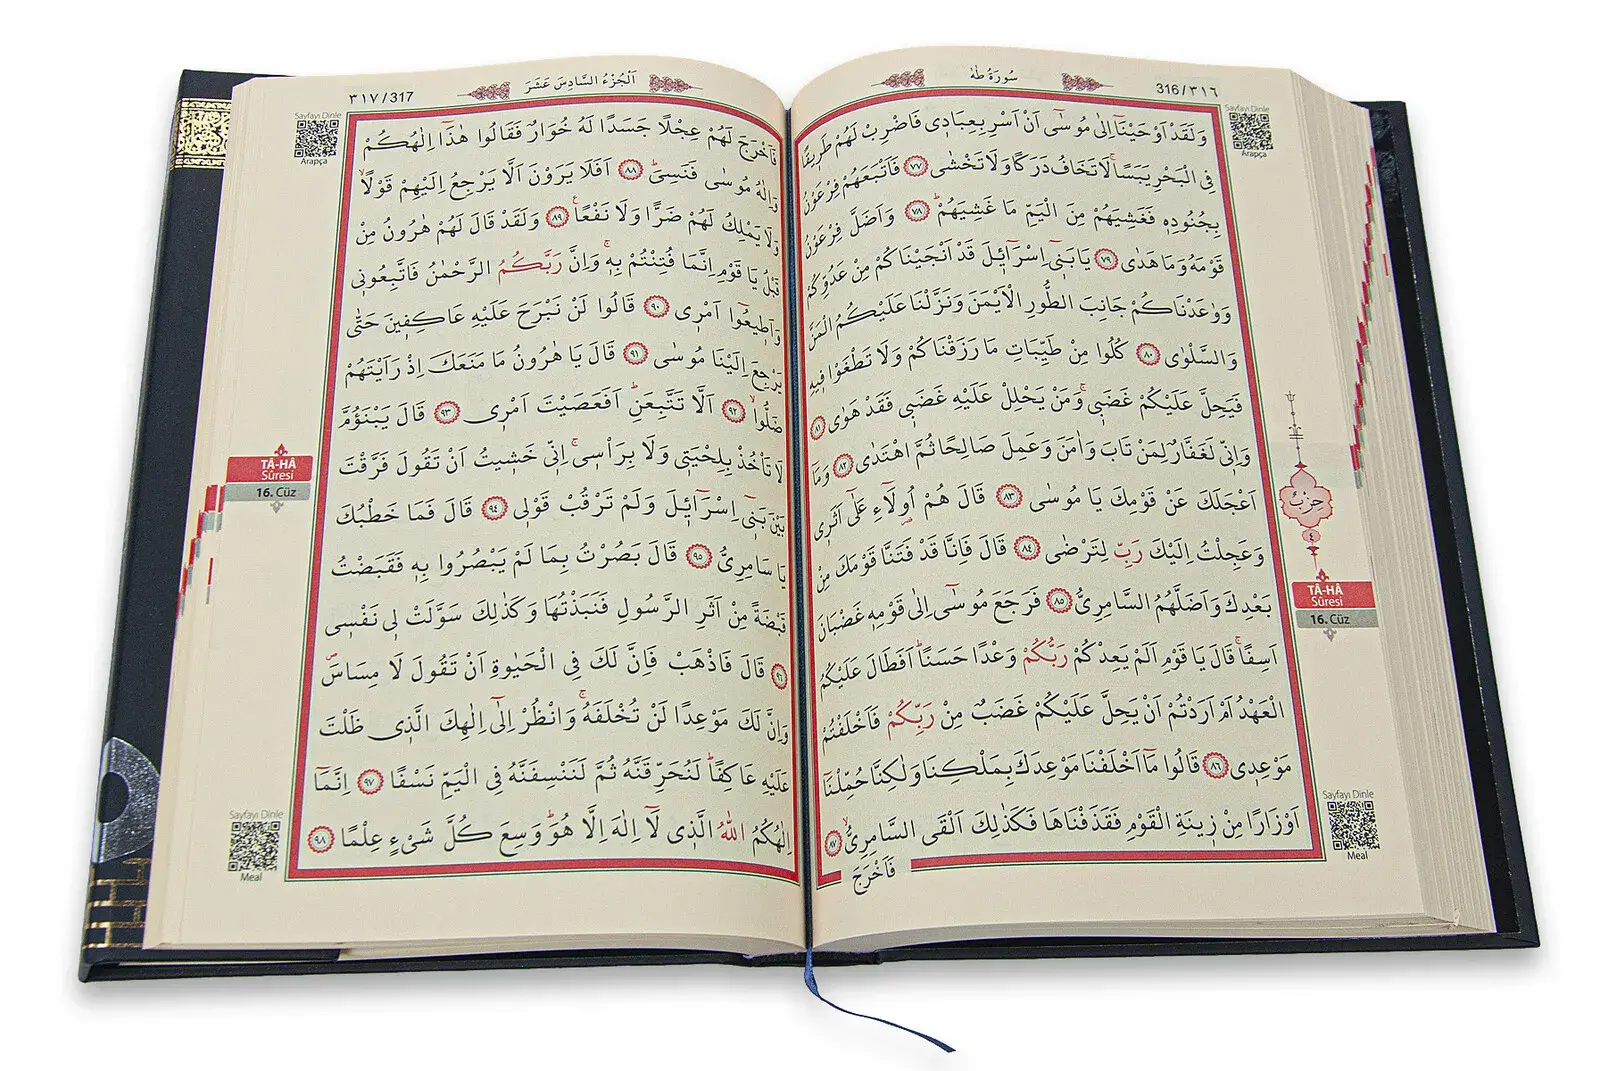 سُورَةُ طٰهٰ
316/٣١٦
Sayfayı Dinle
Arapça
وَلَقَدْ اَوْحَيْنَٓا اِلٰى مُوسٰٓى اَنْ اَسْرِ بِعِبَادٖى فَاضْرِبْ لَهُمْ طَرٖيقًا
فِى الْبَحْرِ يَبَسًاۙ لَا تَخَافُ دَرَكًا وَلَا تَخْشٰى ﴿٧٧﴾ فَاَتْبَعَهُمْ فِرْعَوْنُ
بِجُنُودِهٖ فَغَشِيَهُمْ مِنَ الْيَمِّ مَا غَشِيَهُمْۜ ﴿٧٨﴾ وَاَضَلَّ فِرْعَوْنُ
قَوْمَهُ وَمَا هَدٰى ﴿٧٩﴾ يَا بَنٖٓى اِسْرَٓائٖلَ قَدْ اَنْجَيْنَاكُمْ مِنْ عَدُوِّكُمْ
وَوٰعَدْنَاكُمْ جَانِبَ الطُّورِ الْاَيْمَنَ وَنَزَّلْنَا عَلَيْكُمُ الْمَنَّ
وَالسَّلْوٰى ﴿٨٠﴾ كُلُوا مِنْ طَيِّبَاتِ مَا رَزَقْنَاكُمْ وَلَا تَطْغَوْا فٖيهِ
فَيَحِلَّ عَلَيْكُمْ غَضَبٖىۚ وَمَنْ يَحْلِلْ عَلَيْهِ غَضَبٖى فَقَدْ هَوٰى ﴿٨١﴾
وَاِنّٖى لَغَفَّارٌ لِمَنْ تَابَ وَاٰمَنَ وَعَمِلَ صَالِحًا ثُمَّ اهْتَدٰى ﴿٨٢﴾ وَمَٓا
اَعْجَلَكَ عَنْ قَوْمِكَ يَا مُوسٰى ﴿٨٣﴾ قَالَ هُمْ اُو۬لَٓاءِ عَلٰٓى اَثَرٖى
وَعَجِلْتُ اِلَيْكَ رَبِّ لِتَرْضٰى ﴿٨٤﴾ قَالَ فَاِنَّا قَدْ فَتَنَّا قَوْمَكَ مِنْ
بَعْدِكَ وَاَضَلَّهُمُ السَّامِرِىُّ ﴿٨٥﴾ فَرَجَعَ مُوسٰٓى اِلٰى قَوْمِهٖ غَضْبَانَ
اَسِفًاۚ قَالَ يَا قَوْمِ اَلَمْ يَعِدْكُمْ رَبُّكُمْ وَعْدًا حَسَنًاۜ اَفَطَالَ عَلَيْكُمُ
الْعَهْدُ اَمْ اَرَدْتُمْ اَنْ يَحِلَّ عَلَيْكُمْ غَضَبٌ مِنْ رَبِّكُمْ فَاَخْلَفْتُمْ
مَوْعِدٖى ﴿٨٦﴾ قَالُوا مَٓا اَخْلَفْنَا مَوْعِدَكَ بِمَلْكِنَا وَلٰكِنَّا حُمِّلْنَٓا
اَوْزَارًا مِنْ زٖينَةِ الْقَوْمِ فَقَذَفْنَاهَا فَكَذٰلِكَ اَلْقَى السَّامِرِىُّۙ ﴿٨٧﴾
فَاَخْرَجَ
حِزْبٌ
٤
TÂ-HÂ
Sûresi
16. Cüz
Sayfayı Dinle
Meal
اَلْجُزْءُ السَّادِسَ عَشَرَ
٣١٧/317
Sayfayı Dinle
Arapça
فَاَخْرَجَ لَهُمْ عِجْلًا جَسَدًا لَهُ خُوَارٌ فَقَالُوا هٰذَٓا اِلٰهُكُمْ
وَاِلٰهُ مُوسٰى فَنَسِىَۜ ﴿٨٨﴾ اَفَلَا يَرَوْنَ اَلَّا يَرْجِعُ اِلَيْهِمْ قَوْلًاۙ
وَلَا يَمْلِكُ لَهُمْ ضَرًّا وَلَا نَفْعًاۚ ﴿٨٩﴾ وَلَقَدْ قَالَ لَهُمْ هٰرُونُ مِنْ
قَبْلُ يَا قَوْمِ اِنَّمَا فُتِنْتُمْ بِهٖۚ وَاِنَّ رَبَّكُمُ الرَّحْمٰنُ فَاتَّبِعُونٖى
وَاَطٖيعُٓوا اَمْرٖى ﴿٩٠﴾ قَالُوا لَنْ نَبْرَحَ عَلَيْهِ عَاكِفٖينَ حَتّٰى
يَرْجِعَ اِلَيْنَا مُوسٰى ﴿٩١﴾ قَالَ يَا هٰرُونُ مَا مَنَعَكَ اِذْ رَاَيْتَهُمْ
ضَلُّواۙ ﴿٩٢﴾ اَلَّا تَتَّبِعَنِۜ اَفَعَصَيْتَ اَمْرٖى ﴿٩٣﴾ قَالَ يَبْنَؤُمَّ
لَا تَأْخُذْ بِلِحْيَتٖى وَلَا بِرَأْسٖىۚ اِنّٖى خَشٖيتُ اَنْ تَقُولَ فَرَّقْتَ
بَيْنَ بَنٖٓى اِسْرَٓائٖلَ وَلَمْ تَرْقُبْ قَوْلٖى ﴿٩٤﴾ قَالَ فَمَا خَطْبُكَ
يَا سَامِرِىُّ ﴿٩٥﴾ قَالَ بَصُرْتُ بِمَا لَمْ يَبْصُرُوا بِهٖ فَقَبَضْتُ
قَبْضَةً مِنْ اَثَرِ الرَّسُولِ فَنَبَذْتُهَا وَكَذٰلِكَ سَوَّلَتْ لٖى نَفْسٖى
﴿٩٦﴾ قَالَ فَاذْهَبْ فَاِنَّ لَكَ فِى الْحَيٰوةِ اَنْ تَقُولَ لَا مِسَاسَۖ
وَاِنَّ لَكَ مَوْعِدًا لَنْ تُخْلَفَهُۚ وَانْظُرْ اِلٰٓى اِلٰهِكَ الَّذٖى ظَلْتَ
عَلَيْهِ عَاكِفًاۜ لَنُحَرِّقَنَّهُ ثُمَّ لَنَنْسِفَنَّهُ فِى الْيَمِّ نَسْفًا ﴿٩٧﴾ اِنَّمَٓا
اِلٰهُكُمُ اللّٰهُ الَّذٖى لَٓا اِلٰهَ اِلَّا هُوَۜ وَسِعَ كُلَّ شَىْءٍ عِلْمًا ﴿٩٨﴾
TÂ-HÂ
Sûresi
16. Cüz
Sayfayı Dinle
Meal